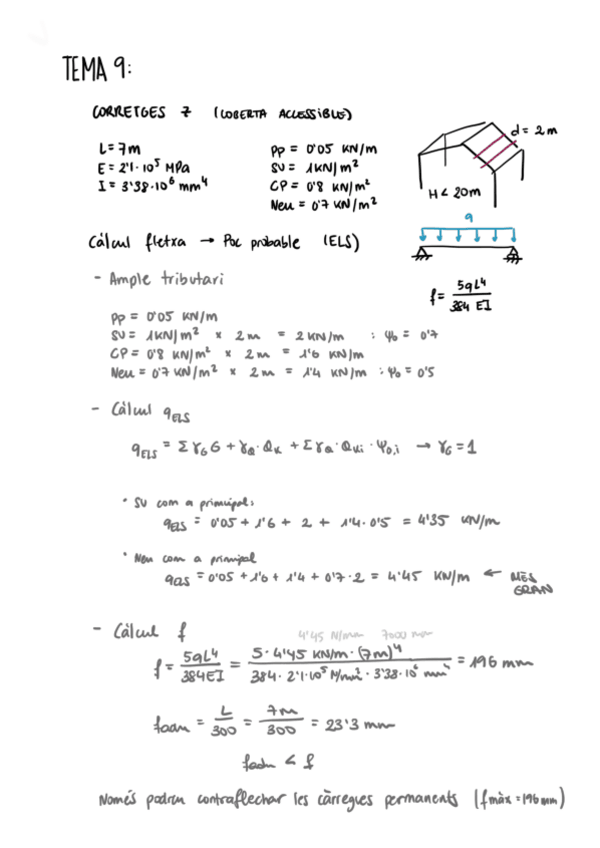 TEMA 9:
CORRETGES 7 (COBERTA ACCESSIBLE)
L = 7m
E = 2'1·10⁵ MPa
I = 3'38·10⁶ mm⁴
PP = 0'05 KN/m
SU = 1KN/m²
CP = 0'8 KN/m²
Neu = 0'7 KN/m²
d = 2m
H < 20m
q
f = 5qL⁴ / 384 EI
Càlcul fletxa → Poc probable (ELS)
- Ample tributari
PP = 0'05 KN/m
SU = 1KN/m² × 2m = 2KN/m : ψ₀ = 0'7
CP = 0'8 KN/m² × 2m = 1'6 KN/m
Neu = 0'7 KN/m² × 2m = 1'4 KN/m : ψ₀ = 0'5
- Càlcul qELS
qELS = Σ γG G + γQ · QK + Σ γQ · QKi · ψ0,i → γG = 1
· SU com a principal:
qELS = 0'05 + 1'6 + 2 + 1'4·0'5 = 4'35 KN/m
· Neu com a principal
qELS = 0'05 + 1'6 + 1'4 + 0'7·2 = 4'45 KN/m ← MÉS GRAN
- Càlcul f
4'45 N/mm 7000 mm
f = 5qL⁴ / 384EI = 5·4'45 KN/m·(7m)⁴ / 384·2'1·10⁵ N/mm²·3'38·10⁶ mm⁴ = 196 mm
fadm = L / 300 = 7m / 300 = 23'3 mm
fadm < f
Només podrem contraflechar les càrregues permanents (fmàx = 196mm)